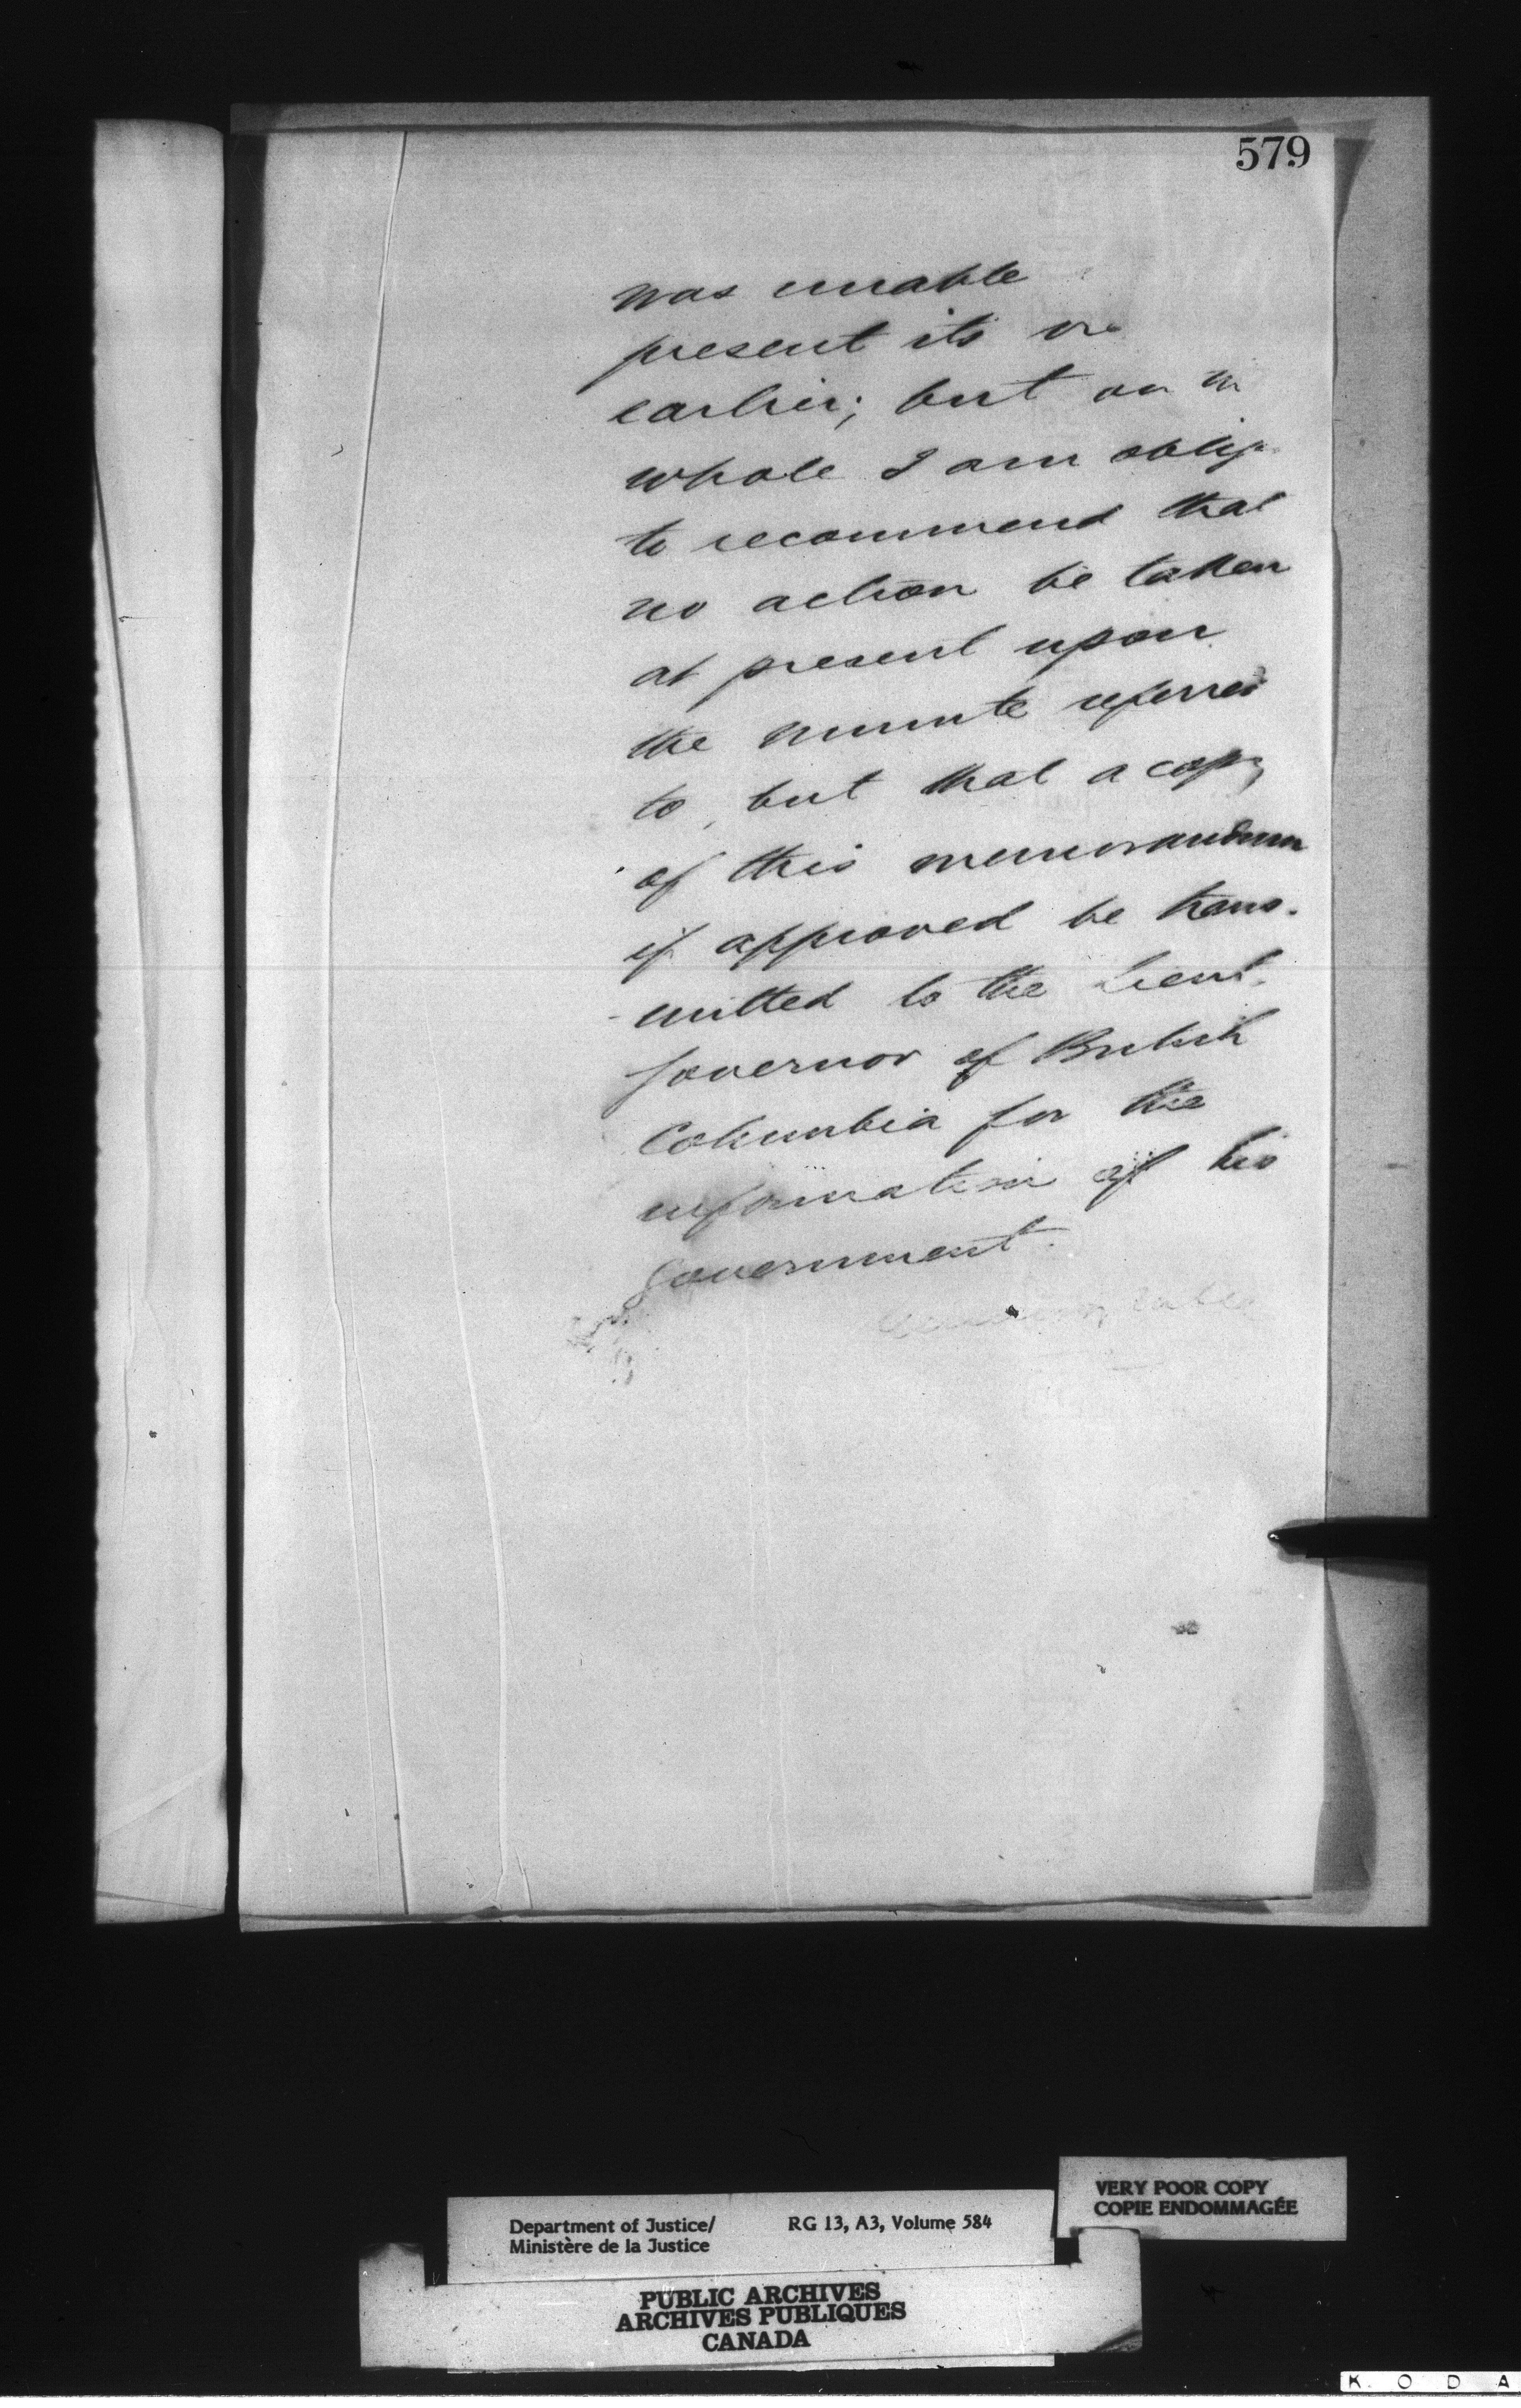 579
was unable
present its
earlier; but on
whole I am oblig
to recommend that
no action be taken
at present upon
the minute referred
to, but that a copy
of this memorandum
if approved be trans-
-mitted to the Lieut.
Governor of British
Columbia for the
information of his
Government.
VERY POOR COPY
COPIE ENDOMMAGÉE
Department of Justice/ RG 13, A3, Volume 584
Ministère de la Justice
PUBLIC ARCHIVES
ARCHIVES PUBLIQUES
CANADA
K O D A